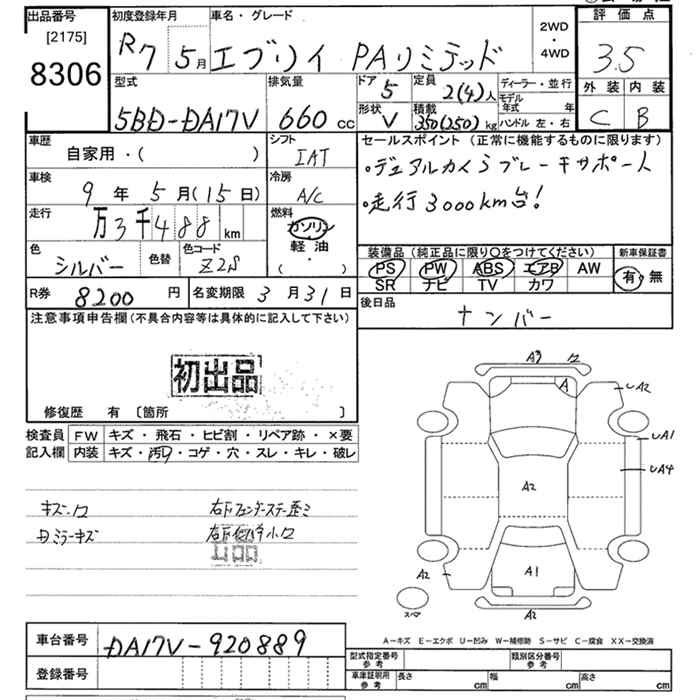 出品番号
[2175]
8306
初度登録年月
R7 5月
車名・グレード
エブリイ PAリミテッド
2WD
・
4WD
評価点
3.5
外装 内装
C B
型式
5BD-DA17V
排気量
660 cc
ドア
5
定員
2(4)人
形状
V
積載
350(250)kg
ディーラー・並行
モデル年式 年
ハンドル 左・右
車歴
自家用・( )
シフト
IAT
車検
9年 5月(15日)
冷房
A/C
走行
万3千488 km
燃料
ガソリン
・
軽油
( ・ )
色
シルバー
色替
色コード
Z2S
セールスポイント (正常に機能するものに限ります)
・デュアルカメラブレーキサポート
・走行3000km台!
装備品 (純正品に限り〇をつけてください)
PS PW ABS エアB AW
SR ナビ TV カワ
新車保証書
有・無
R券
8200 円
名変期限 3月31日
後日品
ナンバー
注意事項申告欄(不具合内容等は具体的に記入して下さい)
初出品
修復歴 有 〔箇所 〕
検査員
記入欄
FW キズ・飛石・ヒビ割・リペア跡・×要
内装 キズ・汚れ・コゲ・穴・スレ・キレ・破レ
キズ・凹
出品
A3
凹
A
A2
A1
A4
A2
A2
A1
スペア
A2
A-キズ E-エクボ U-凹み W-補修跡 S-サビ C-腐食 XX-交換済
車台番号
DA17V-920889
登録番号
型式指定番号
参考
類別区分番号
参考
車庫証明用
参考
長さ cm
幅 cm
高さ cm